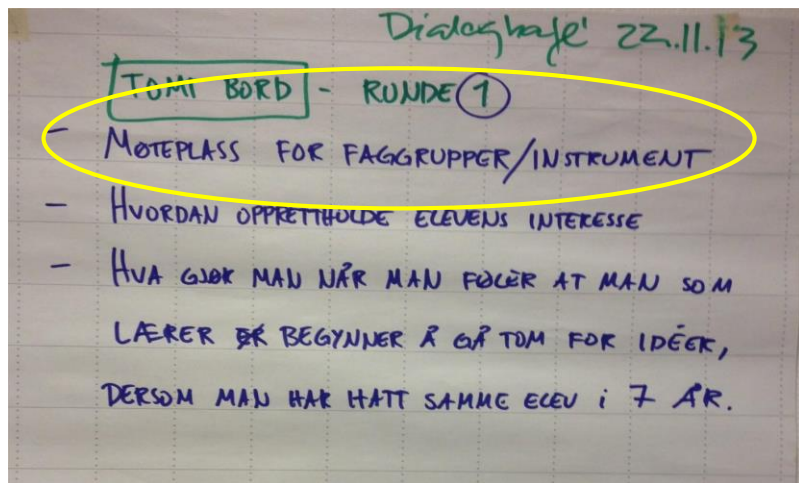 Dialogkafé 22.11.13
TOMI BORD - RUNDE 1
- MØTEPLASS FOR FAGGRUPPER/INSTRUMENT
- HVORDAN OPPRETTHOLDE ELEVENS INTERESSE
- HVA GJØR MAN NÅR MAN FØLER AT MAN SOM
LÆRER BEGYNNER Å GÅ TOM FOR IDÉER,
DERSOM MAN HAR HATT SAMME ELEV i 7 ÅR.